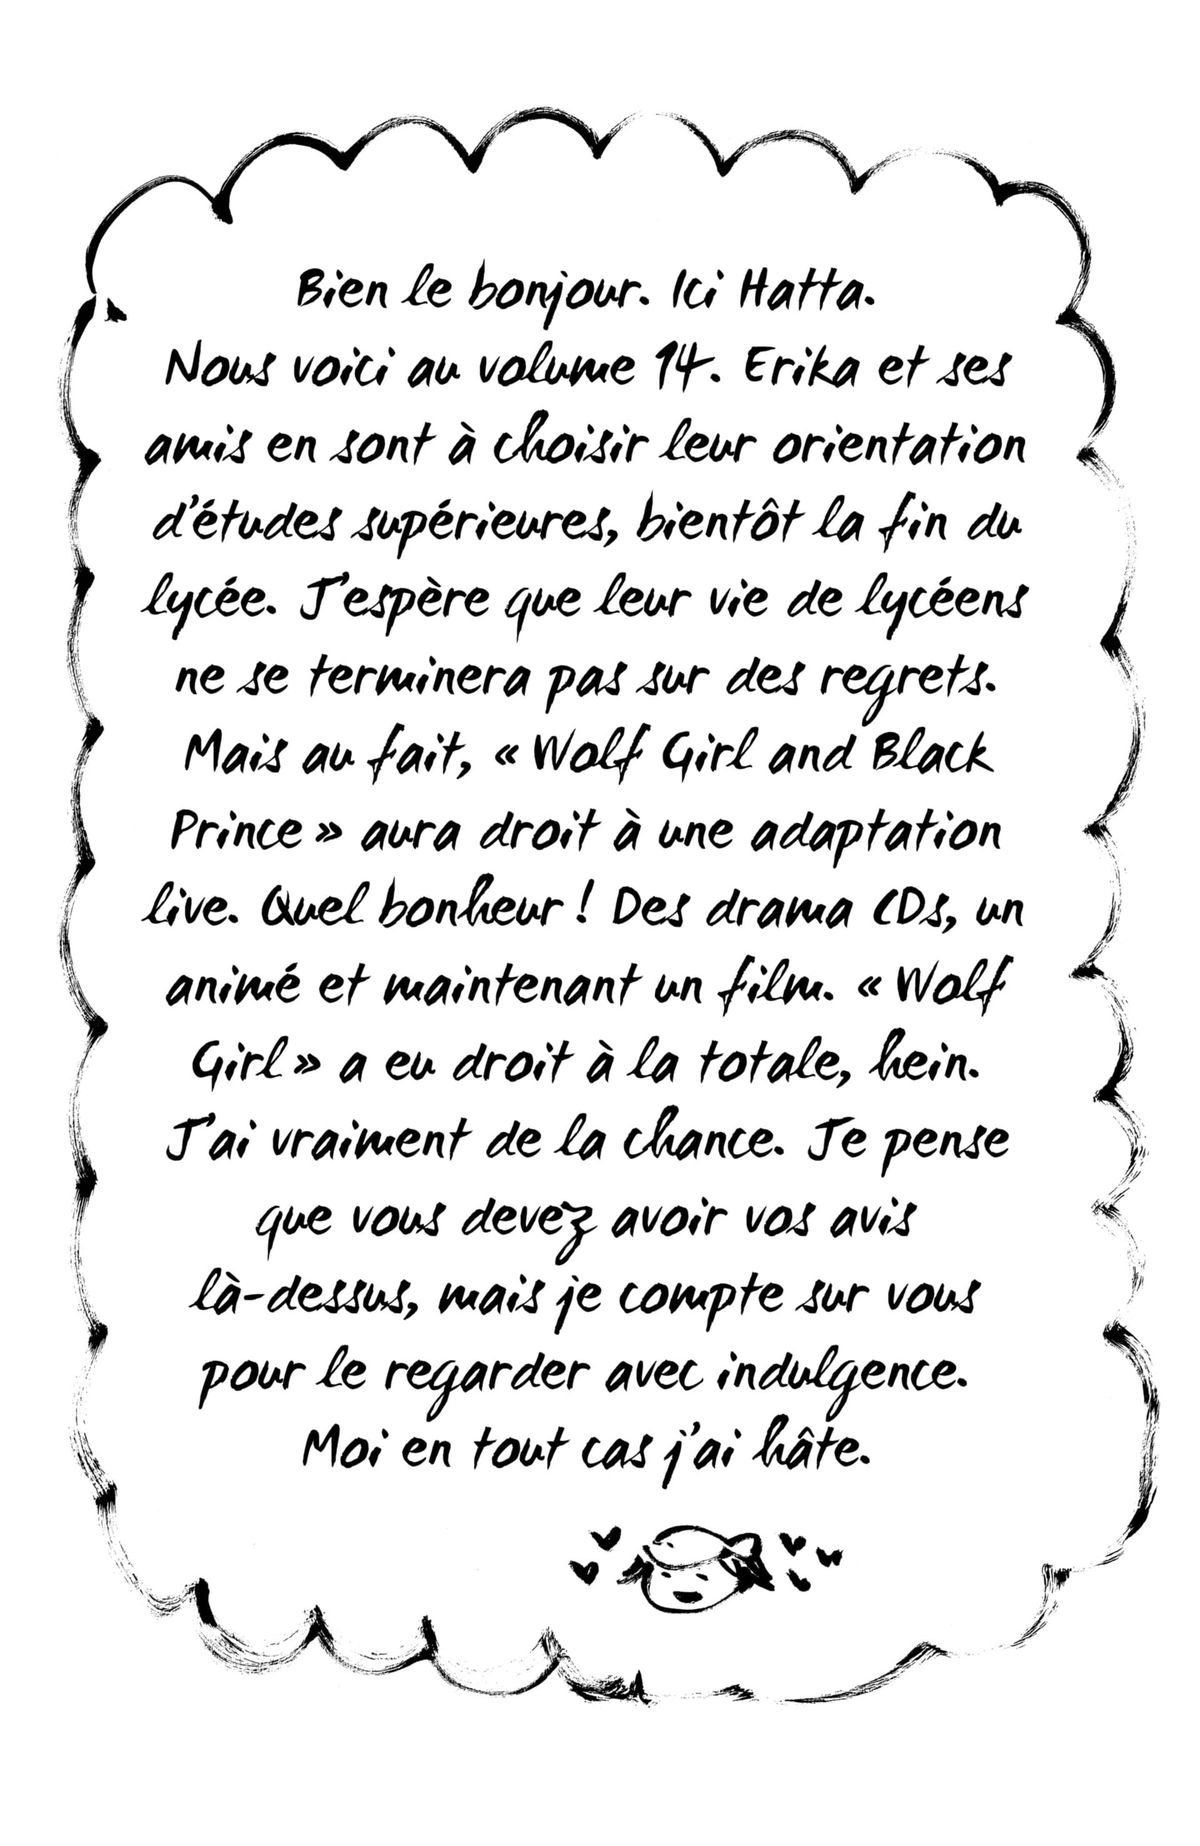 Bien le bonjour. Ici Hatta.
Nous voici au volume 14. Erika et ses
amis en sont à choisir leur orientation
d'études supérieures, bientôt la fin du
lycée. J'espère que leur vie de lycéens
ne se terminera pas sur des regrets.
Mais au fait, « Wolf Girl and Black
Prince » aura droit à une adaptation
live. Quel bonheur ! Des drama CDs, un
animé et maintenant un film. « Wolf
Girl » a eu droit à la totale, hein.
J'ai vraiment de la chance. Je pense
que vous devez avoir vos avis
là-dessus, mais je compte sur vous
pour le regarder avec indulgence.
Moi en tout cas j'ai hâte.